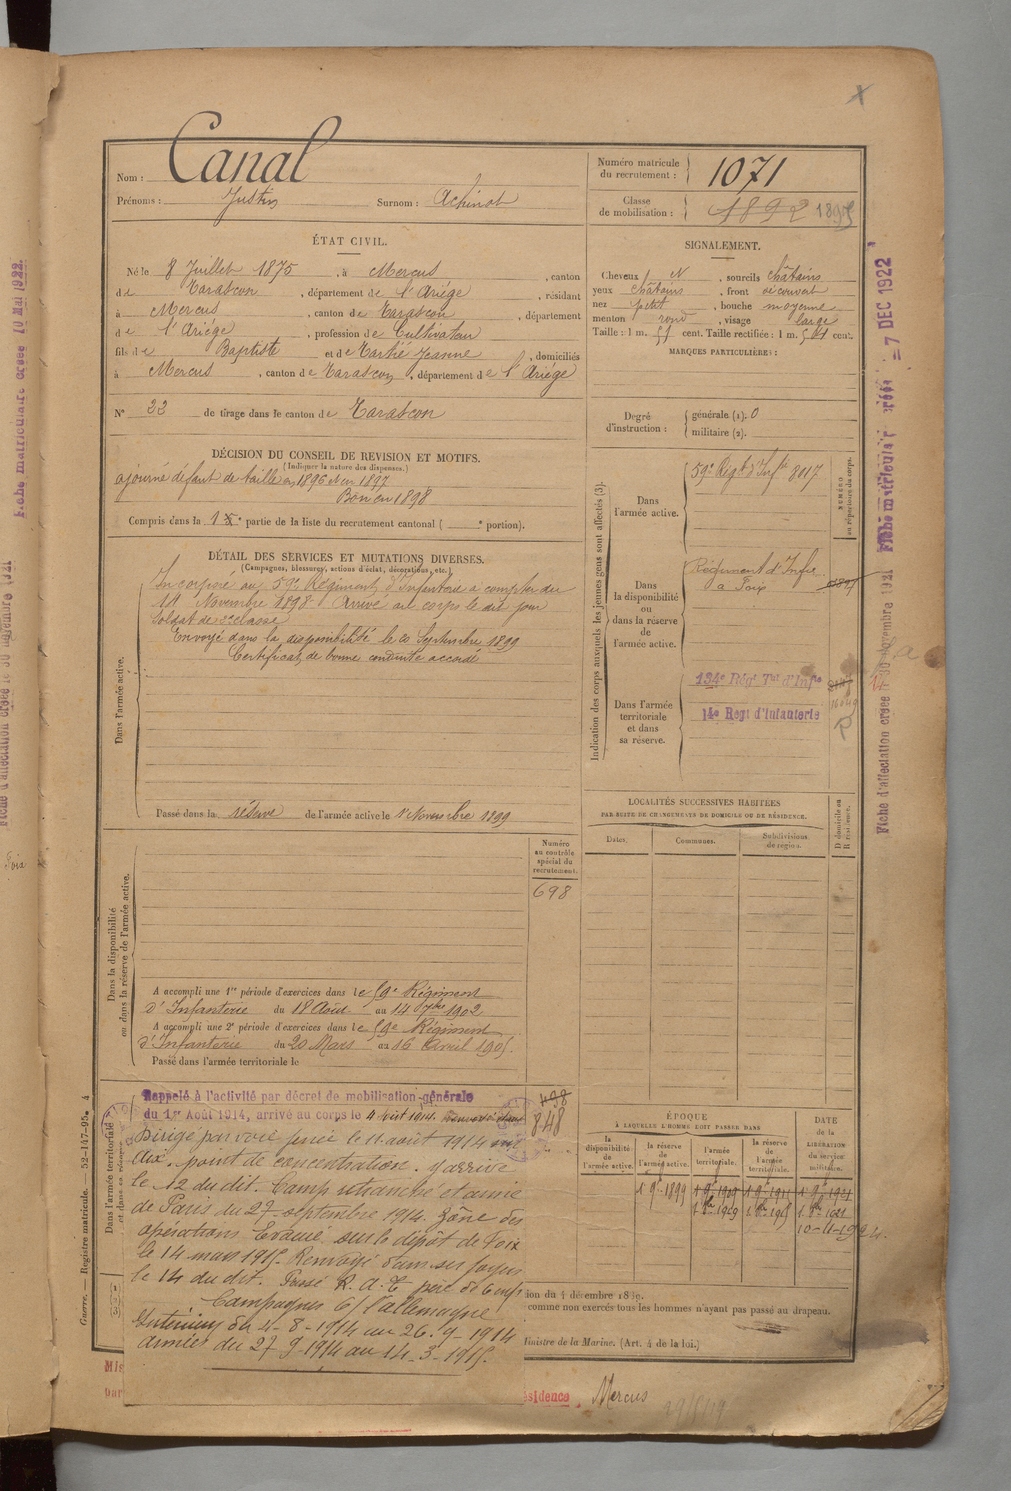 Nom : Canal
Prénoms : Justin Surnom : Achinot
Numéro matricule du recrutement : 1071
Classe de mobilisation : 1892 1895
ÉTAT CIVIL.
Né le 8 Juillet 1875, à Mercus, canton
de Tarascon, département de l'Ariège, résidant
à Mercus, canton de Tarascon, département
de l'Ariége, profession de Cultivateur
fils de Baptiste et de Jeanne, domiciliés
à Mercus, canton de Tarascon, département de l'Ariége
N° 22 de tirage dans le canton de Tarascon
SIGNALEMENT.
Cheveux N, sourcils châtains
yeux châtains, front découvert
nez petit, bouche moyenne
menton rond, visage large
Taille : 1 m. 51 cent. Taille rectifiée : 1 m. cent.
MARQUES PARTICULIÈRES :
Degré d'instruction : générale (1). 0
militaire (2).
DÉCISION DU CONSEIL DE REVISION ET MOTIFS.
(Indiquer la nature des dispenses.)
ajourné défaut de taille en 1896 et en 1897
Bon en 1898
Compris dans la 1e partie de la liste du recrutement cantonal ( e portion).
DÉTAIL DES SERVICES ET MUTATIONS DIVERSES.
(Campagnes, blessures, actions d'éclat, décorations, etc.)
Dans l'armée active.
Incorporé au 59e Régiment d'Infanterie à compter du
14 Novembre 1898. Arrivé au corps le dit jour
Soldat de 2e classe
Envoyé dans la disponibilité le 20 Septembre 1899
Certificat de bonne conduite accordé
Passé dans la réserve de l'armée active le 1r Novembre 1899
Indication des corps auxquels les jeunes gens sont affectés (3).
NUMÉRO au répertoire du corps.
Dans l'armée active.
59e Régt d'Infie 8017
Dans la disponibilité ou dans la réserve de l'armée active.
Régiment d'Infie
à Foix
Dans l'armée territoriale et dans sa réserve.
134e Régt Tal d'Infie
14e Regt d'Infanterie
LOCALITÉS SUCCESSIVES HABITÉES
PAR SUITE DE CHANGEMENTS DE DOMICILE OU DE RÉSIDENCE.
Dates. Communes. Subdivisions de région. D domicile ou R résidence.
Dans la disponibilité ou dans la réserve de l'armée active.
Numéro au contrôle spécial du recrutement.
698
A accompli une 1re période d'exercices dans le 59e Régiment
d'Infanterie du 18 Août au 14 7bre 1902
A accompli une 2e période d'exercices dans le 59e Régiment
d'Infanterie du 20 Mars au 16 Avril 1905.
Passé dans l'armée territoriale le
Dans l'armée territoriale
Rappelé à l'activité par décret de mobilisation générale
du 1er Août 1914, arrivé au corps le 4 Août 1914.
498
848
Dirigé par voie ferrée le 11 août 1914 sur
Aix, point de concentration. Y arrive
le 12 du dit. Camp retranché et armée
de Paris du 27 septembre 1914. Zône des
opérations Evacué sur le dépôt de Foix
le 14 mars 1915. Renvoyé dans ses foyers
le 14 du dit. Passé R. A. T. père de 6 enfts
Campagnes C/ l'allemagne
Intérieur du 4-8-1914 au 26-9-1914
armées du 27-9-1914 au 14-3-1915.
ÉPOQUE
À LAQUELLE L'HOMME DOIT PASSER DANS
la disponibilité de l'armée active. la réserve de l'armée active. l'armée territoriale. la réserve de l'armée territoriale.
DATE de la LIBÉRATION du service militaire.
1 9e 1899 1 9e 1909 1 9e 1921
10-11-1922.
tion du 4 décembre 1889.
comme non exercés tous les hommes n'ayant pas passé au drapeau.
Ministre de la Marine. (Art. 4 de la loi.)
ésidence, Mercus
Guerre. — Registre matricule. — 52-147-95. 4
Fiche matriculaire créée 10 Mai 1922.
Fiche matriculaire créée = 7 DEC 1922
Fiche d'affectation créée le 30 novembre 1921
Fiche d'affectation créée le 30 novembre 1921
Foix